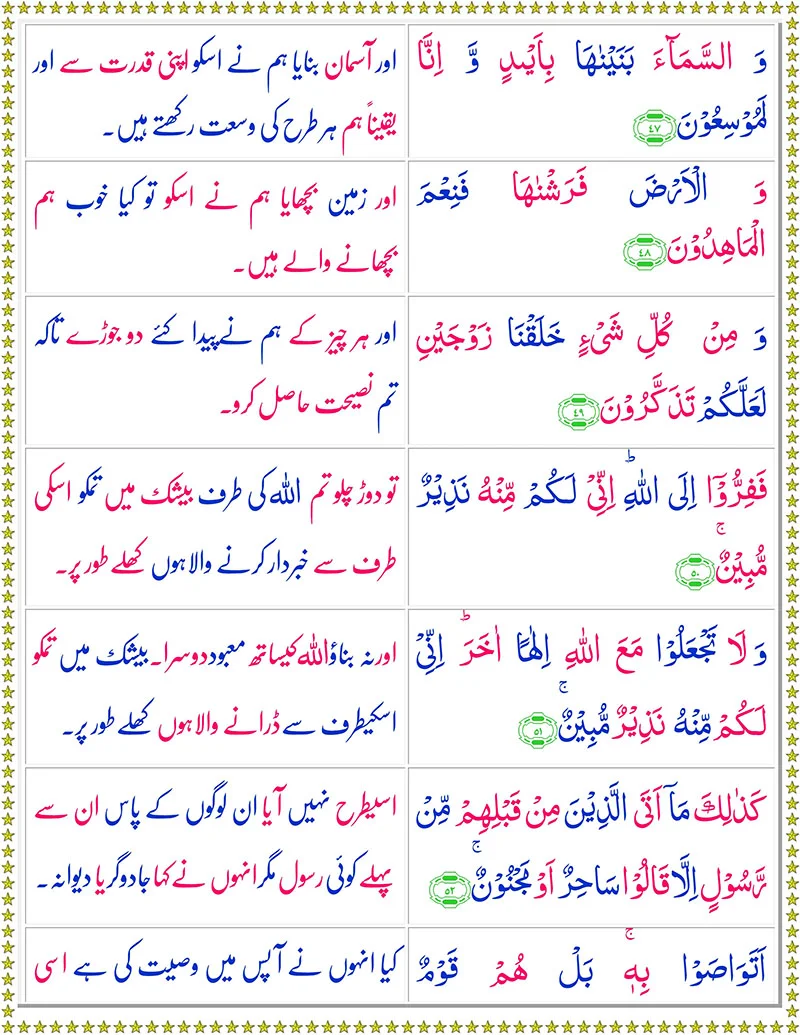 وَ السَّمَآءَ بَنَيۡنٰهَا بِاَيۡٮدٍ وَّ اِنَّا
لَمُوۡسِعُوۡنَ ﴿٤٧﴾
اور آسمان بنایا ہم نے اسکو اپنی قدرت سے اور
یقیناً ہم ہر طرح کی وسعت رکھتے ہیں۔
وَ الۡاَرۡضَ فَرَشۡنٰهَا فَنِعۡمَ
الۡمَاهِدُوۡنَ ﴿٤٨﴾
اور زمین بچھایا ہم نے اسکو تو کیا خوب ہم
بچھانے والے ہیں۔
وَ مِنۡ كُلِّ شَىۡءٍ خَلَقۡنَا زَوۡجَيۡنِ
لَعَلَّكُمۡ تَذَكَّرُوۡنَ ﴿٤٩﴾
اور ہر چیز کے ہم نے پیدا کئے دو جوڑے تاکہ
تم نصیحت حاصل کرو۔
فَفِرُّوۡۤا اِلَى اللّٰهِ‌ؕ اِنِّىۡ لَـكُمۡ مِّنۡهُ نَذِيۡرٌ
مُّبِيۡنٌ‌ۚ ﴿٥٠﴾
تو دوڑ چلو تم اللہ کی طرف بیشک میں تمکو اسکی
طرف سے خبردار کرنے والا ہوں کھلے طور پر۔
وَ لَا تَجۡعَلُوۡا مَعَ اللّٰهِ اِلٰهًا اٰخَرَ‌ؕ اِنِّىۡ
لَـكُمۡ مِّنۡهُ نَذِيۡرٌ مُّبِيۡنٌ‌ۚ ﴿٥١﴾
اور نہ بناؤ اللہ کیساتھ معبود دوسرا۔ بیشک میں تمکو
اسکیطرف سے ڈرانے والا ہوں کھلے طور پر۔
كَذٰلِكَ مَاۤ اَتَى الَّذِيۡنَ مِنۡ قَبۡلِهِمۡ مِّنۡ
رَّسُوۡلٍ اِلَّا قَالُوۡا سَاحِرٌ اَوۡ مَجۡنُوۡنٌ‌ۚ ﴿٥٢﴾
اسیطرح نہیں آیا ان لوگوں کے پاس ان سے
پہلے کوئی رسول مگر انہوں نے کہا جادوگر یا دیوانہ۔
اَتَوَاصَوۡا بِهٖ‌ۚ بَلۡ هُمۡ قَوۡمٌ
کیا انہوں نے آپس میں وصیت کی ہے اسی